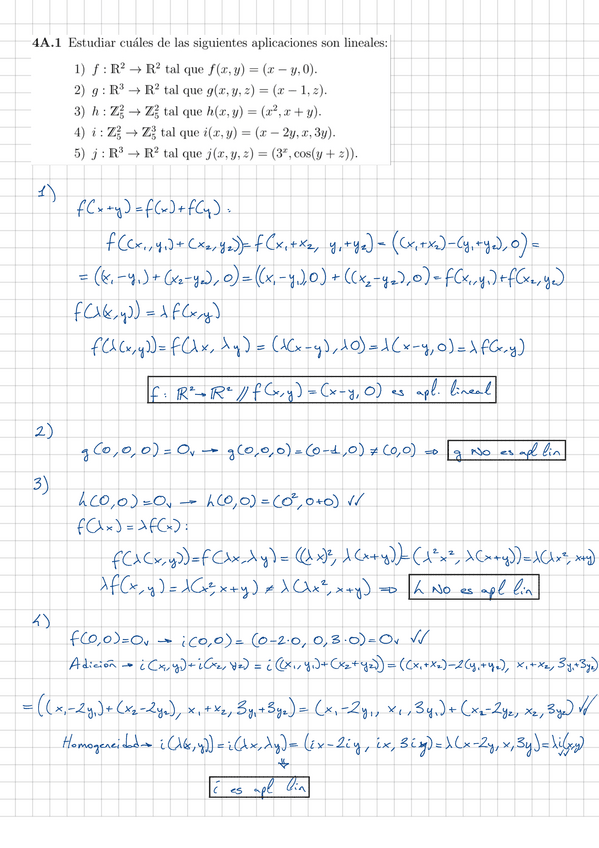 4A.1 Estudiar cuáles de las siguientes aplicaciones son lineales:
1) f : ℝ² → ℝ² tal que f(x, y) = (x − y, 0).
2) g : ℝ³ → ℝ² tal que g(x, y, z) = (x − 1, z).
3) h : ℤ₅² → ℤ₅² tal que h(x, y) = (x², x + y).
4) i : ℤ₅² → ℤ₅³ tal que i(x, y) = (x − 2y, x, 3y).
5) j : ℝ³ → ℝ² tal que j(x, y, z) = (3ˣ, cos(y + z)).
1)
f(x+y)=f(x)+f(y) :
f((x₁,y₁)+(x₂,y₂))=f(x₁+x₂, y₁+y₂)=((x₁+x₂)-(y₁+y₂),0)=
=((x₁-y₁)+(x₂-y₂),0)=((x₁-y₁),0)+((x₂-y₂),0)=f(x₁,y₁)+f(x₂,y₂)
f(λ(x,y))=λf(x,y)
f(λ(x,y))=f(λx, λy)=(λ(x-y),λ0)=λ(x-y,0)=λf(x,y)
f: ℝ²→ℝ² // f(x,y)=(x-y,0) es apl. lineal
2)
g(0,0,0)=0ᵥ → g(0,0,0)=(0-1,0)≠(0,0) ⇒ g No es apl lin
3)
h(0,0)=0ᵥ → h(0,0)=(0²,0+0) ✓✓
f(λx)=λf(x):
f(λ(x,y))=f(λx,λy)=((λx)², λ(x+y))=(λ²x², λ(x+y))=λ(λx², x+y)
λf(x,y)=λ(x²,x+y)≠λ(λx²,x+y) ⇒ h No es apl lin
4)
f(0,0)=0ᵥ → i(0,0)=(0-2·0, 0, 3·0)=0ᵥ ✓✓
Adición → i(x₁,y₁)+i(x₂,y₂)=i((x₁,y₁)+(x₂+y₂))=((x₁+x₂)-2(y₁+y₂), x₁+x₂, 3y₁+3y₂)
=((x₁-2y₁)+(x₂-2y₂), x₁+x₂, 3y₁+3y₂)=(x₁-2y₁, x₁, 3y₁)+(x₂-2y₂, x₂, 3y₂) ✓✓
Homogeneidad → i(λ(x,y))=i(λx,λy)=(ix-2iy, ix, 3iy)=λ(x-2y,x,3y)=λi(x,y)
⇓
i es apl lin